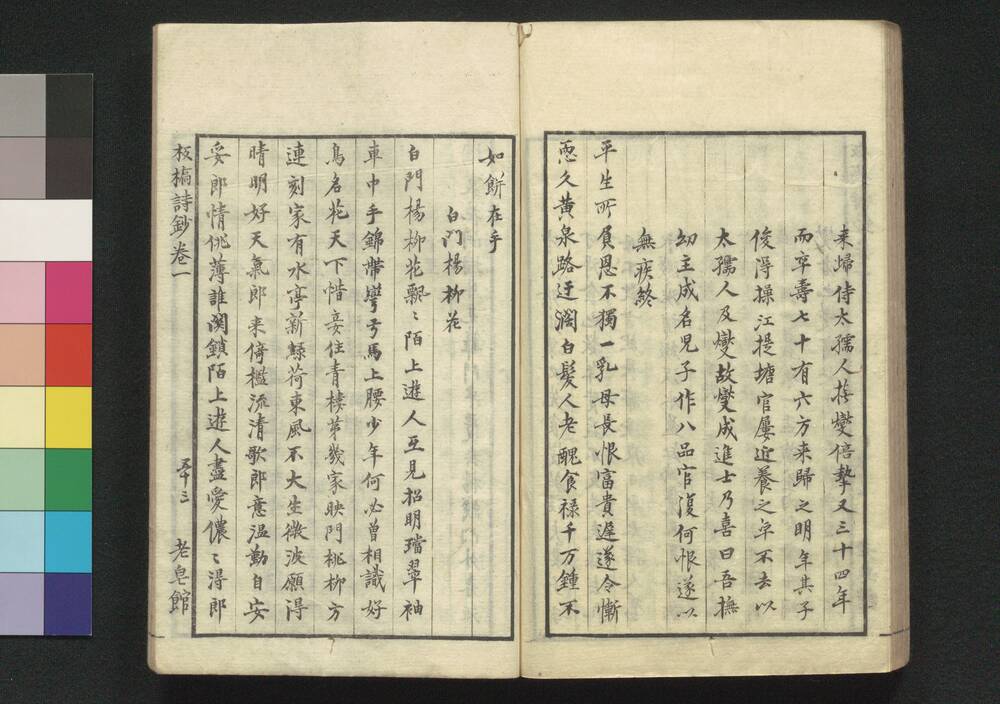 来歸侍太孺人撫燮倍摯又三十四年
而卒壽七十有六方来歸之明年其子
俊得操江提塘官屢迎養之卒不去以
太孺人及燮故燮成進士乃喜曰吾撫
幼主成名児子作八品官復何恨遂以
無疾終
平生所負恩不獨一乳母長恨富貴遅遂令慚
恧久黄泉路迂濶白髮人老醜食禄千万鍾不
如餅在手
白門楊柳花
白門楊柳花飄〻陌上遊人互見招明璫翠袖
車中手錦帶彎弓馬上腰少年何必曽相識好
鳥名花天下惜妾住青樓第幾家映門桃柳方
連刻家有水亭新緑荷東風不大生微波願得
晴明好天氣郎来倚檻流清歌郎意温勤自安
妥郎情佻薄誰関鎖陌上遊人盡愛儂〻得郎
板橋詩鈔卷一
五十三
老皂館